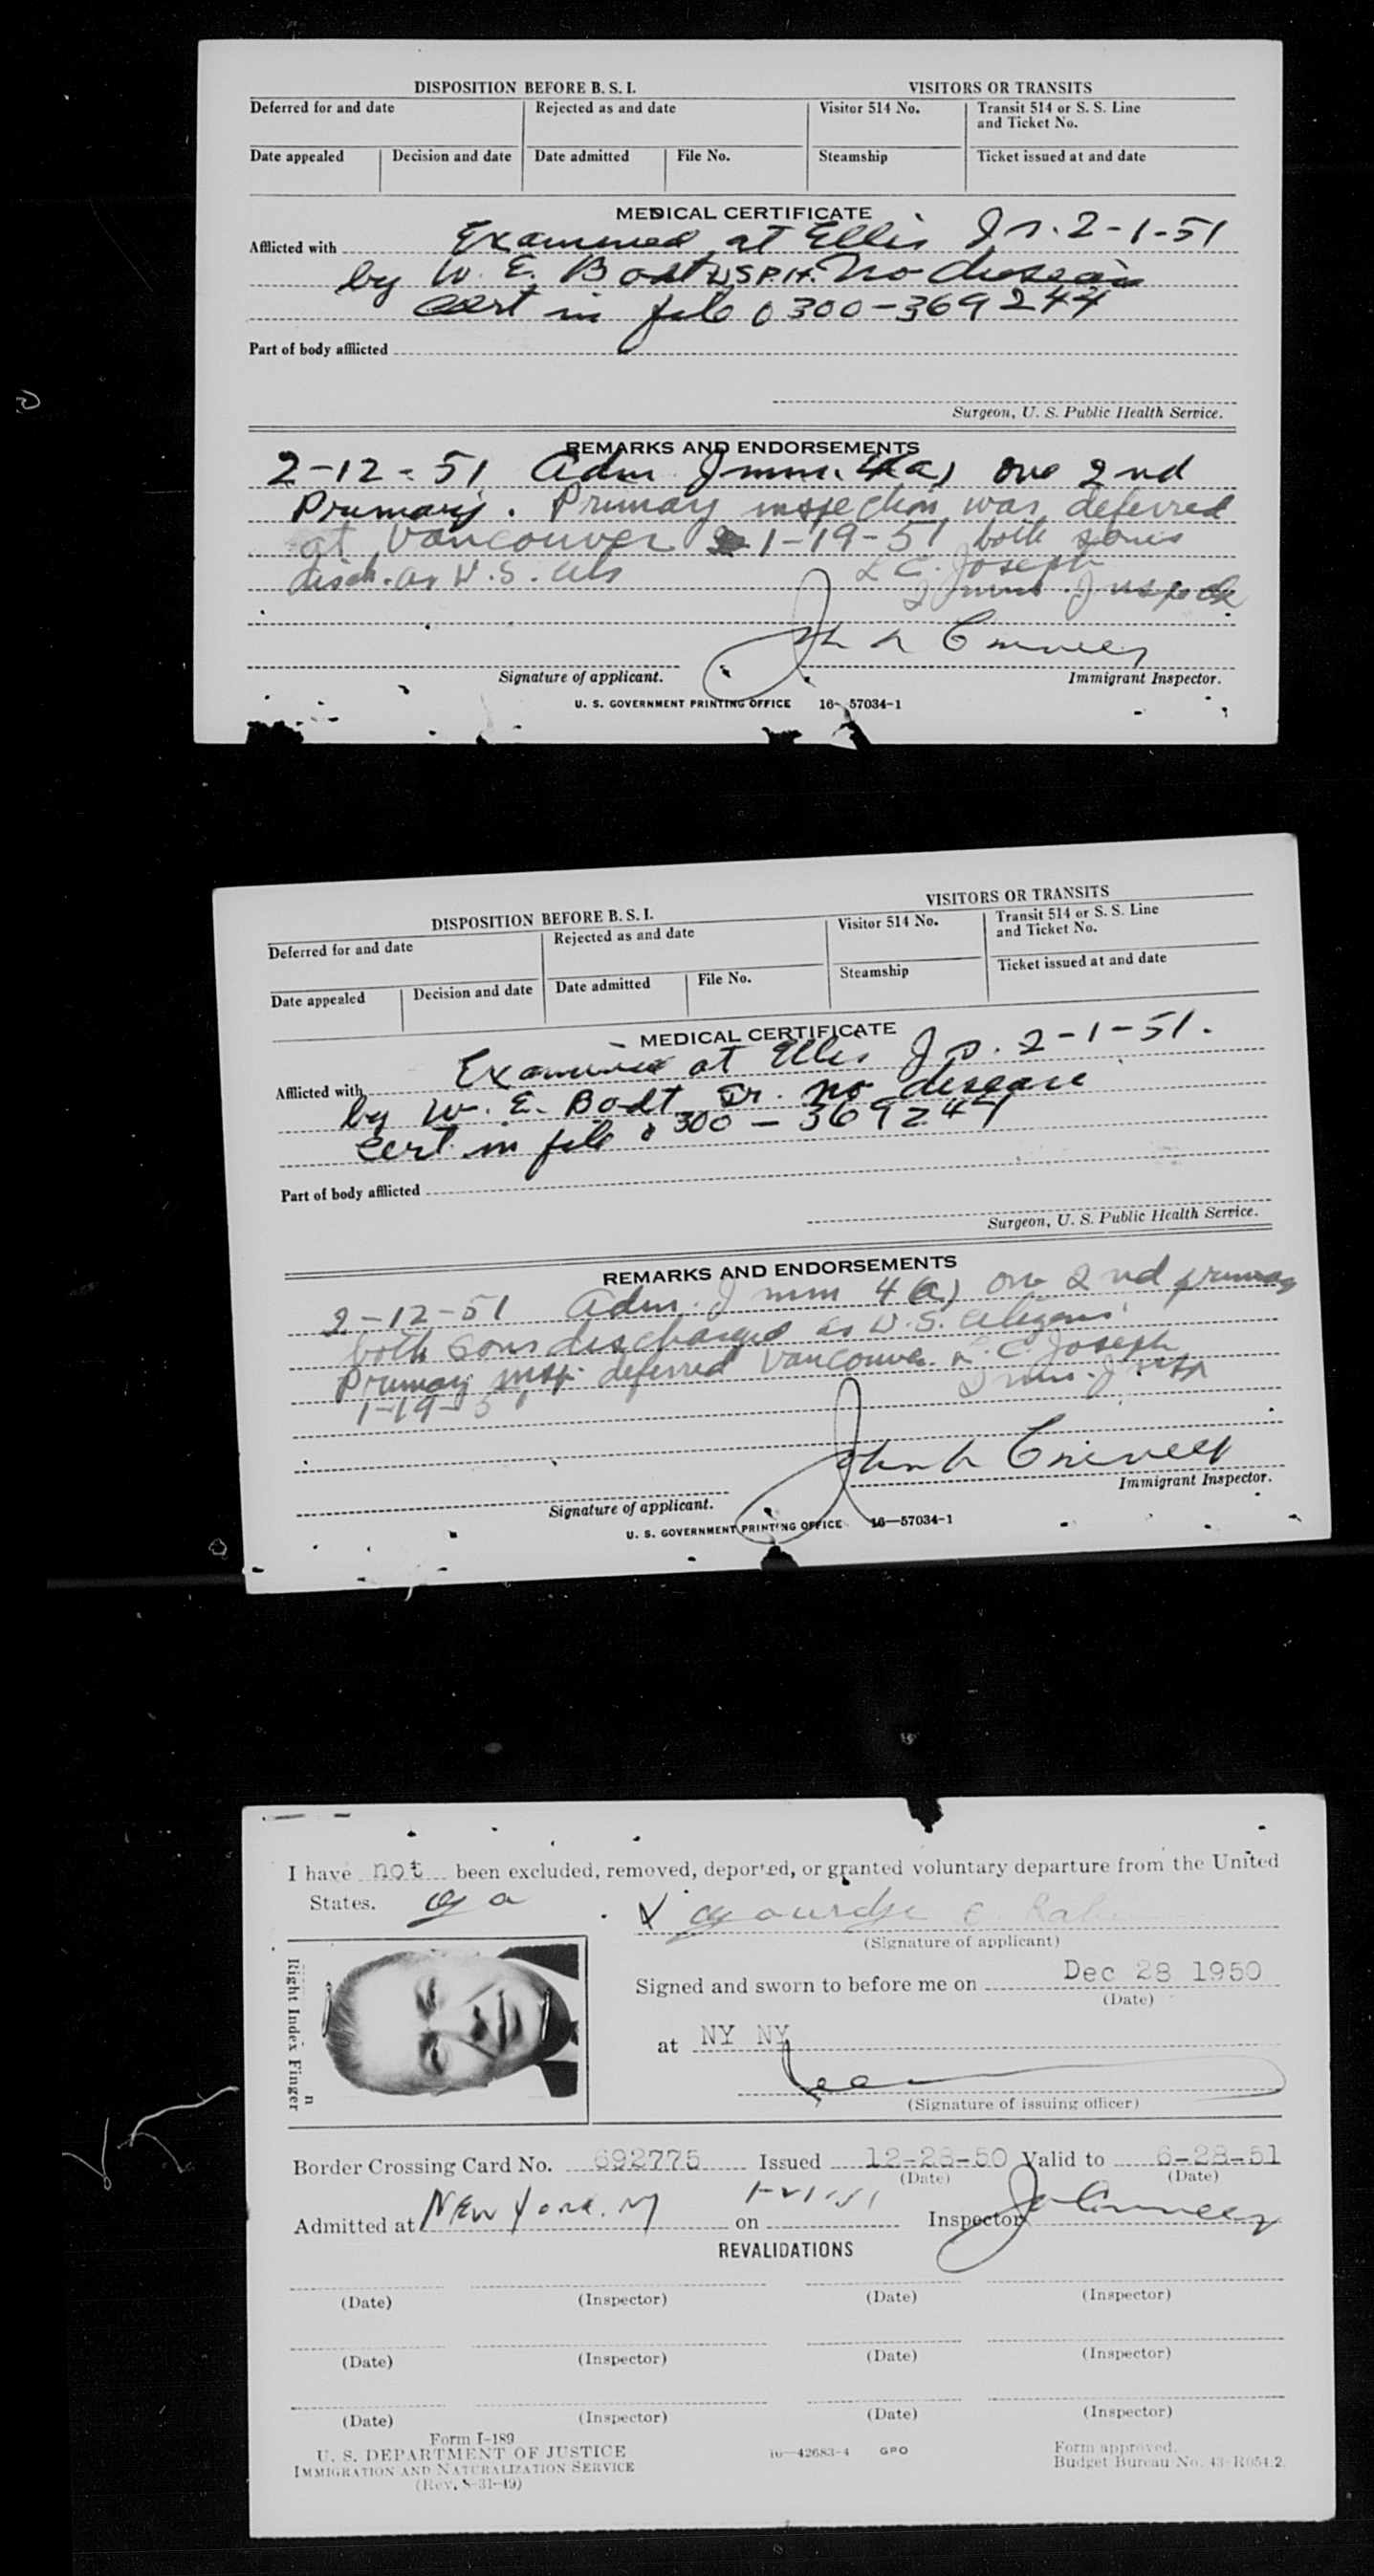 DISPOSITION BEFORE B. S. I. VISITORS OR TRANSITS
Deferred for and date Rejected as and date Visitor 514 No. Transit 514 or S. S. Line
and Ticket No.
Date appealed Decision and date Date admitted File No. Steamship Ticket issued at and date
MEDICAL CERTIFICATE
Afflicted with Examined at Ellis Is. 2-1-51
by W. E. Bodt USPH. No disease
cert in file 0300-369244
Part of body afflicted
Surgeon, U. S. Public Health Service.
REMARKS AND ENDORSEMENTS
2-12-51 Adm Imm. 4(a) on 2nd
Primary. Primary inspection was deferred
at Vancouver 1-19-51 both sons
disch. as U.S. Cits L C. Joseph
Imm. Inspector
Signature of applicant. Immigrant Inspector.
U. S. GOVERNMENT PRINTING OFFICE 16-57034-1
DISPOSITION BEFORE B. S. I. VISITORS OR TRANSITS
Deferred for and date Rejected as and date Visitor 514 No. Transit 514 or S. S. Line
and Ticket No.
Date appealed Decision and date Date admitted File No. Steamship Ticket issued at and date
MEDICAL CERTIFICATE
Afflicted with Examined at Ellis Is. 2-1-51.
by W. E. Bodt Sr. no disease
cert in file 0300-369244
Part of body afflicted
Surgeon, U. S. Public Health Service.
REMARKS AND ENDORSEMENTS
2-12-51 Adm. Imm 4(a) on 2nd primary
both sons discharged as U.S. citizens
Primary insp. deferred Vancouver L. C. Joseph
1-19-5 Imm. Insp
Signature of applicant. Immigrant Inspector.
U. S. GOVERNMENT PRINTING OFFICE 16—57034-1
I have not been excluded, removed, deported, or granted voluntary departure from the United
States.
(Signature of applicant)
Right Index Finger
Signed and sworn to before me on Dec 28 1950
(Date)
at NY NY
(Signature of issuing officer)
Border Crossing Card No. 692775 Issued 12-28-50 Valid to 6-28-51
(Date) (Date)
Admitted at New York. NY on Inspector
REVALIDATIONS
(Date) (Inspector) (Date) (Inspector)
(Date) (Inspector) (Date) (Inspector)
(Date) (Inspector) (Date) (Inspector)
Form I-189
U. S. DEPARTMENT OF JUSTICE 16—42683-4 GPO Form approved.
IMMIGRATION AND NATURALIZATION SERVICE Budget Bureau No. 43-R054.2.
(Rev. 8-31-49)